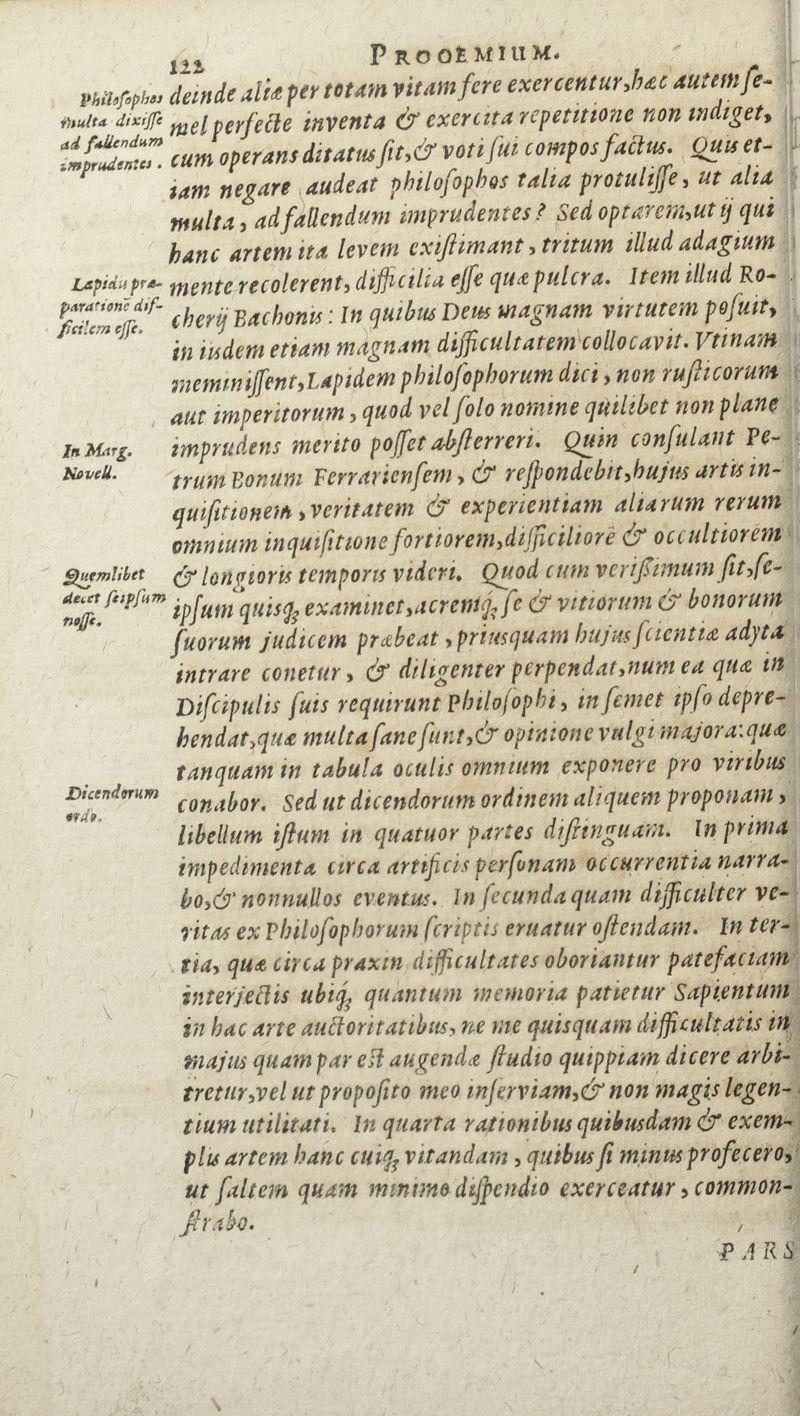 122
PROOEMIUM.
Philosophos
multa dixisse
ad fallendum
imprudentes.
deinde aliæ per totam vitam fere exercentur, hæc autem se-
mel perfecte inventa & exercita repetitione non indiget,
cum operans ditatus sit, & voti sui compos factus. Quis et-
iam negare audeat philosophos talia protulisse, ut alia
multa, ad fallendum imprudentes? Sed optarem, ut ij qui
hanc artem ita levem existimant, tritum illud adagium
Lapidis præ-
parationē dif-
ficilem esse.
mente recolerent, difficilia esse quæ pulcra. Item illud Ro-
cherij Bachonis: In quibus Deus magnam virtutem posuit,
in iisdem etiam magnam difficultatem collocavit. Vtinam
meminissent, Lapidem philosophorum dici, non rusticorum
aut imperitorum, quod vel solo nomine quilibet non plane
In Marg.
Novell.
imprudens merito posset absterreri. Quin consulant Pe-
trum Bonum Ferrariensem, & respondebit, hujus artis in-
quisitionem, veritatem & experientiam aliarum rerum
omnium inquisitione fortiorem, difficiliorē & occultiorem
Quemlibet
decet seipsum
nosse.
& longioris temporis videri. Quod cum verissimum sit, se-
ipsum quisq; examinet, acremq; se & vitiorum & bonorum
suorum judicem præbeat, priusquam hujus scientiæ adyta
intrare conetur, & diligenter perpendat, num ea quæ in
Discipulis suis requirunt Philosophi, in semet ipso depre-
hendat, quæ multa sane sunt, & opinione vulgi majora: quæ
tanquam in tabula oculis omnium exponere pro viribus
Dicendorum
ordo.
conabor. Sed ut dicendorum ordinem aliquem proponam,
libellum istum in quatuor partes distinguam. In prima
impedimenta circa artificis personam occurrentia narra-
bo, & nonnullos eventus. In secunda quam difficulter ve-
ritas ex Philosophorum scriptis eruatur ostendam. In ter-
tia, quæ circa praxin difficultates oboriantur patefaciam
interjectis ubiq; quantum memoria patietur Sapientum
in hac arte auctoritatibus, ne me quisquam difficultatis in
majus quam par est augendæ studio quippiam dicere arbi-
tretur, vel ut proposito meo inserviam, & non magis legen-
tium utilitati. In quarta rationibus quibusdam & exem-
plis artem hanc cuiq; vitandam, quibus si minus profecero,
ut saltem quam minimo dispendio exerceatur, common-
strabo.
PARS